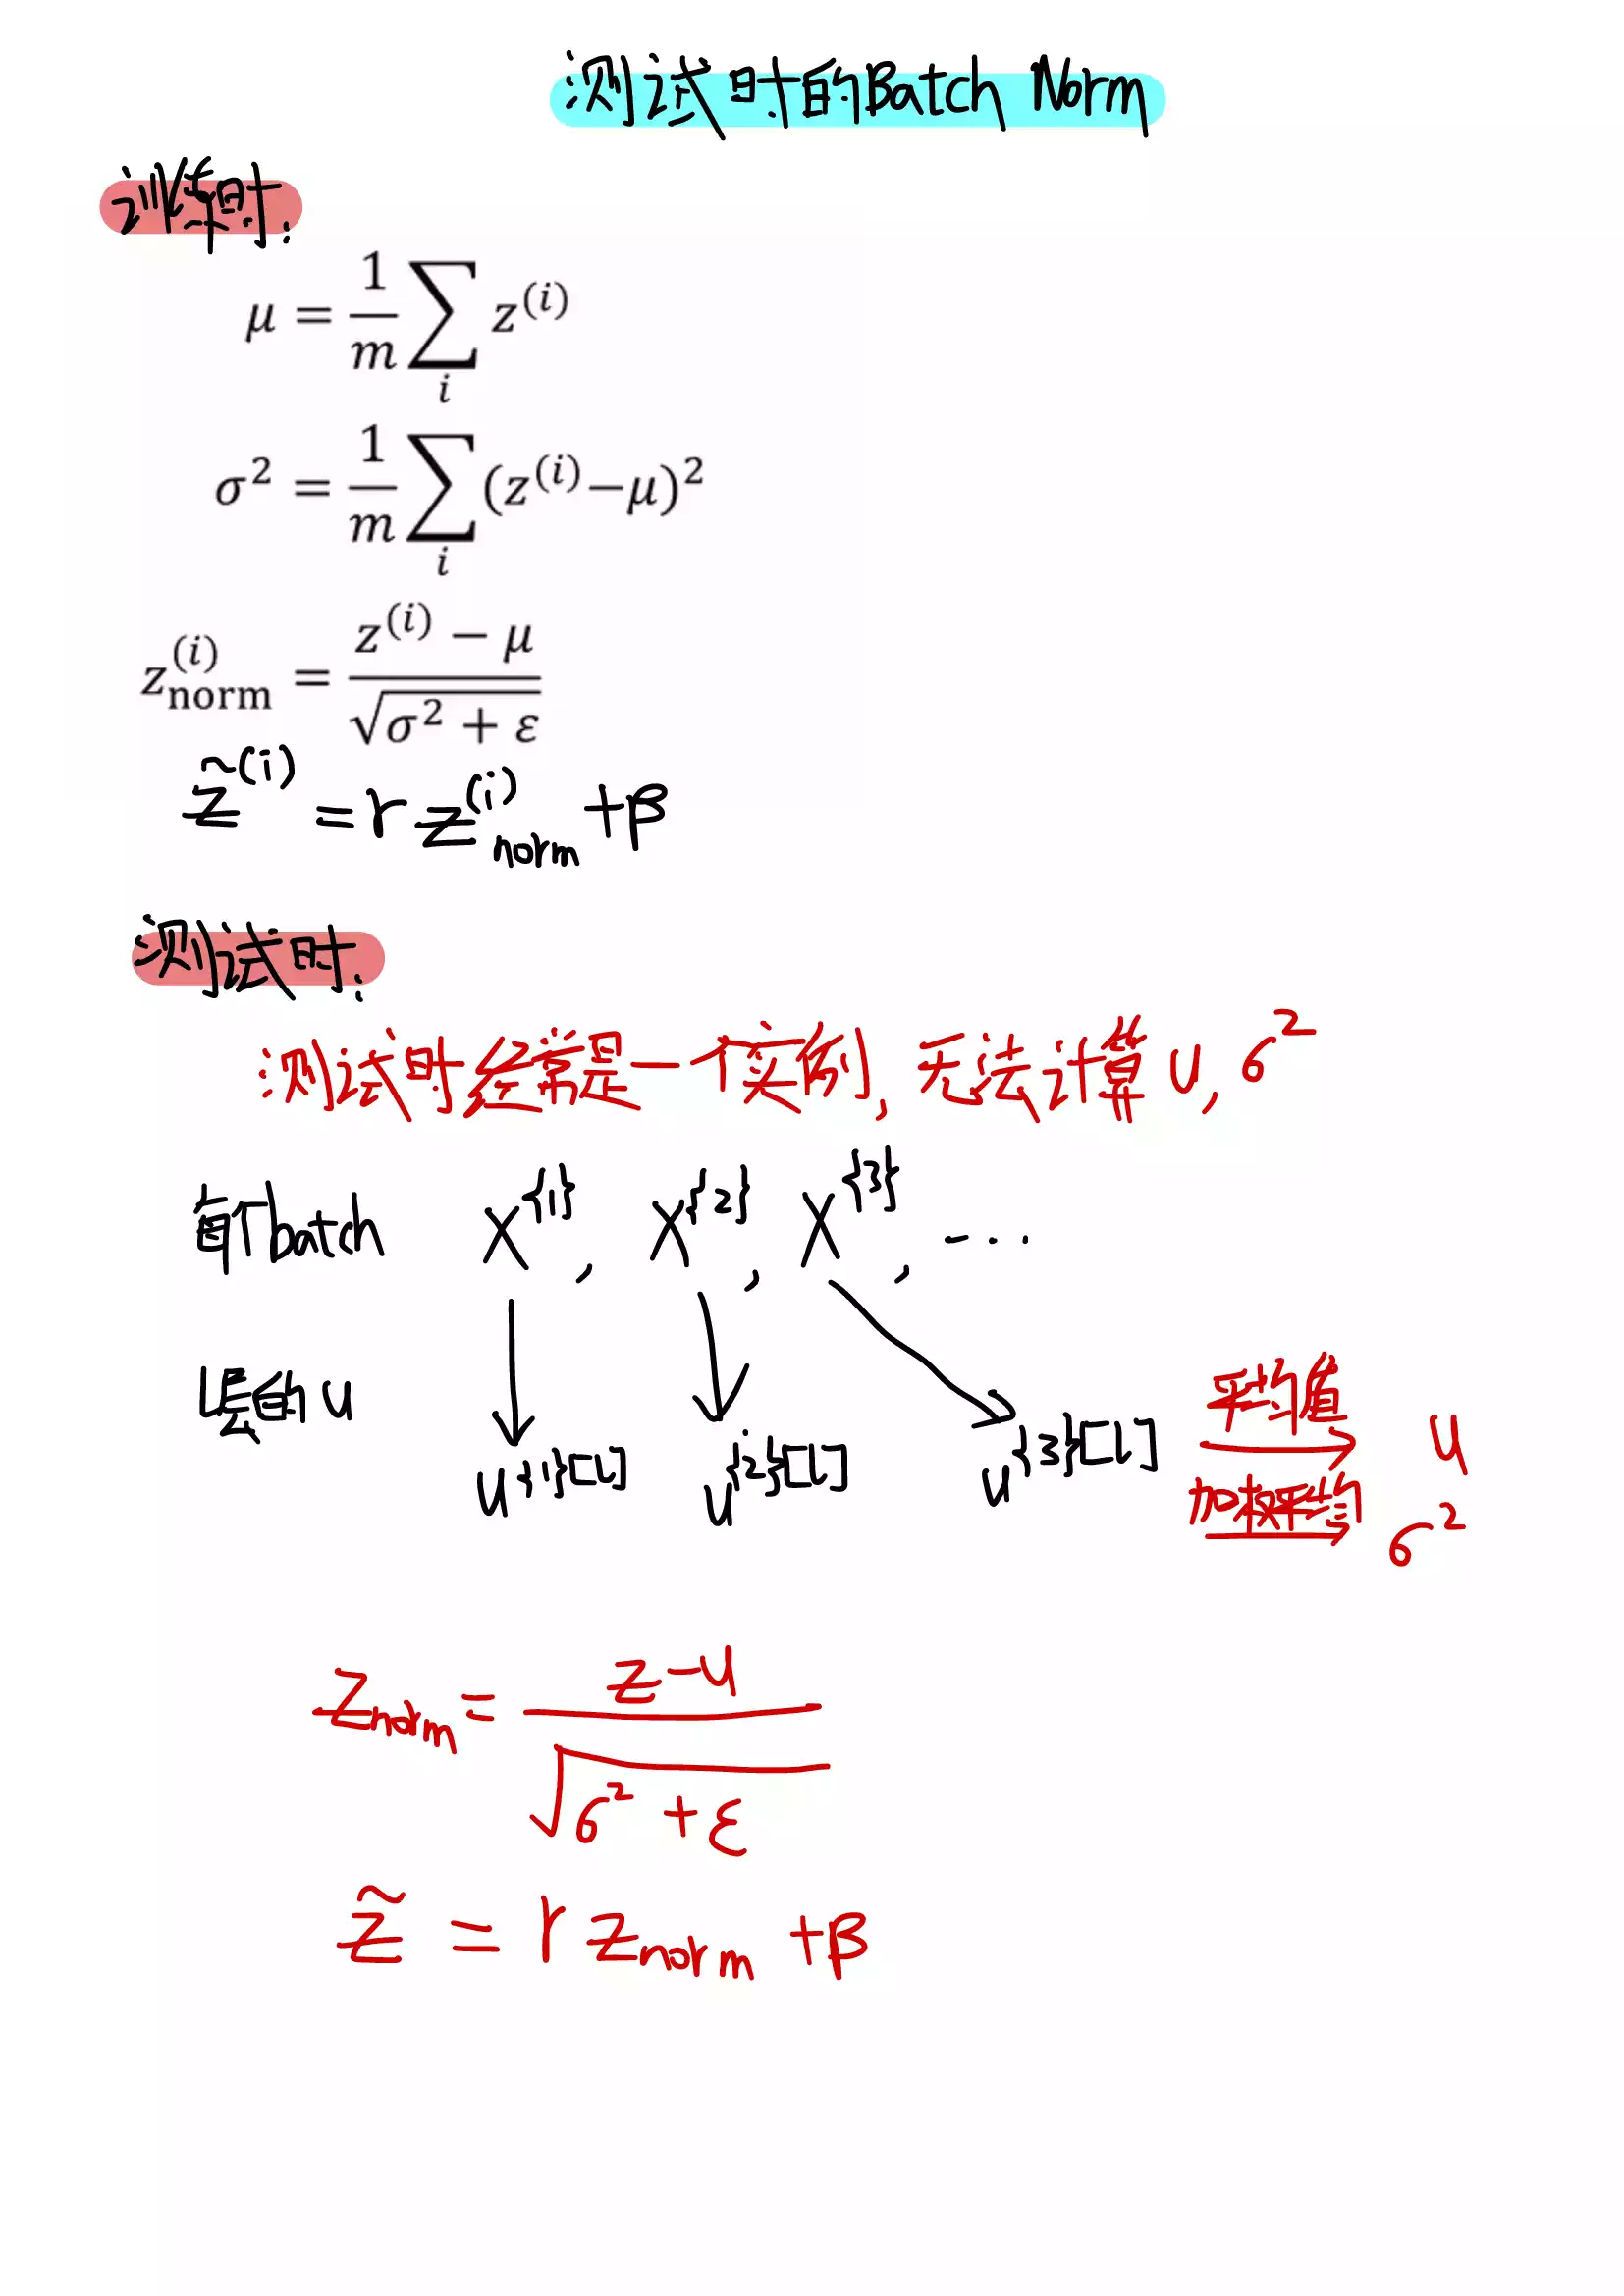 测试时的Batch Norm
训练时:
μ = 1/m ∑_i z^(i)
σ² = 1/m ∑_i (z^(i)−μ)²
z_norm^(i) = (z^(i) − μ) / √(σ² + ε)
z̃^(i) = r z^(i)_norm + β
测试时:
测试时经常是一个实例, 无法计算 u, σ²
每个batch X^{1}, X^{2}, X^{3}, ...
平均值
L层的 u u^{1}[l] u^{2}[l] u^{3}[l] u
加权平均 σ²
z_norm = (z−u) / √(σ² + ε)
z̃ = r z_norm + β